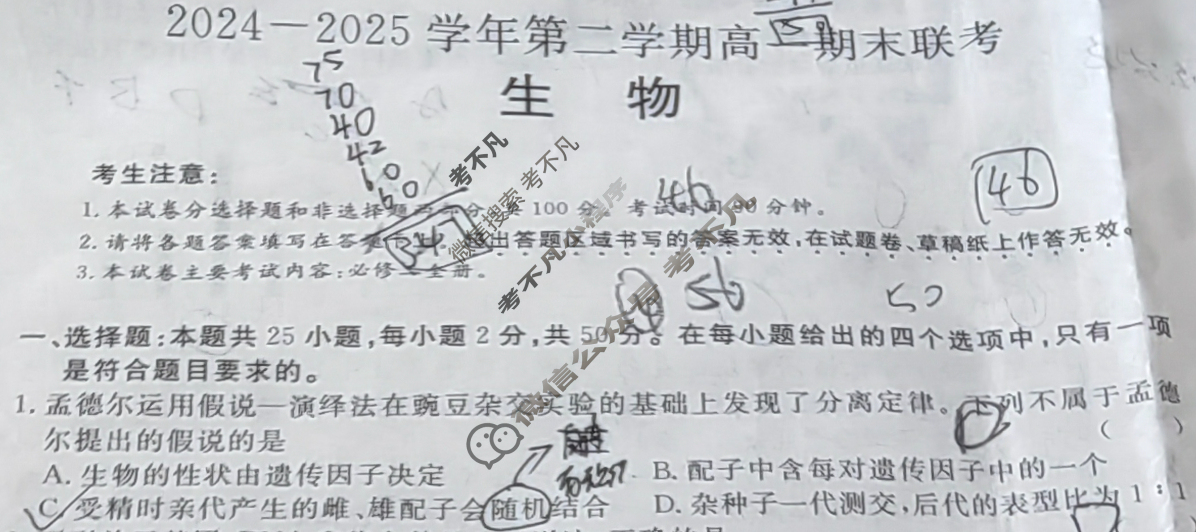 2024—2025学年第二学期高一期末联考
生 物
75
70
40
42
60
60
46
46
考生注意：
1. 本试卷分选择题和非选择题两部分，共100分。考试时间90分钟。
2. 请将各题答案填写在答题卡上，超出答题区域书写的答案无效，在试题卷、草稿纸上作答无效。
3. 本试卷主要考试内容：必修二全册。
56
52
一、选择题：本题共25小题，每小题2分，共50分。在每小题给出的四个选项中，只有一项
是符合题目要求的。
1. 孟德尔运用假说—演绎法在豌豆杂交实验的基础上发现了分离定律。下列不属于孟德
尔提出的假说的是 （ ）
A. 生物的性状由遗传因子决定 B. 配子中含每对遗传因子中的一个
C. 受精时亲代产生的雌、雄配子会随机结合 D. 杂种子一代测交，后代的表型比为1∶1
考不凡
微信搜索 考不凡
考不凡小程序
微信公众号 考不凡